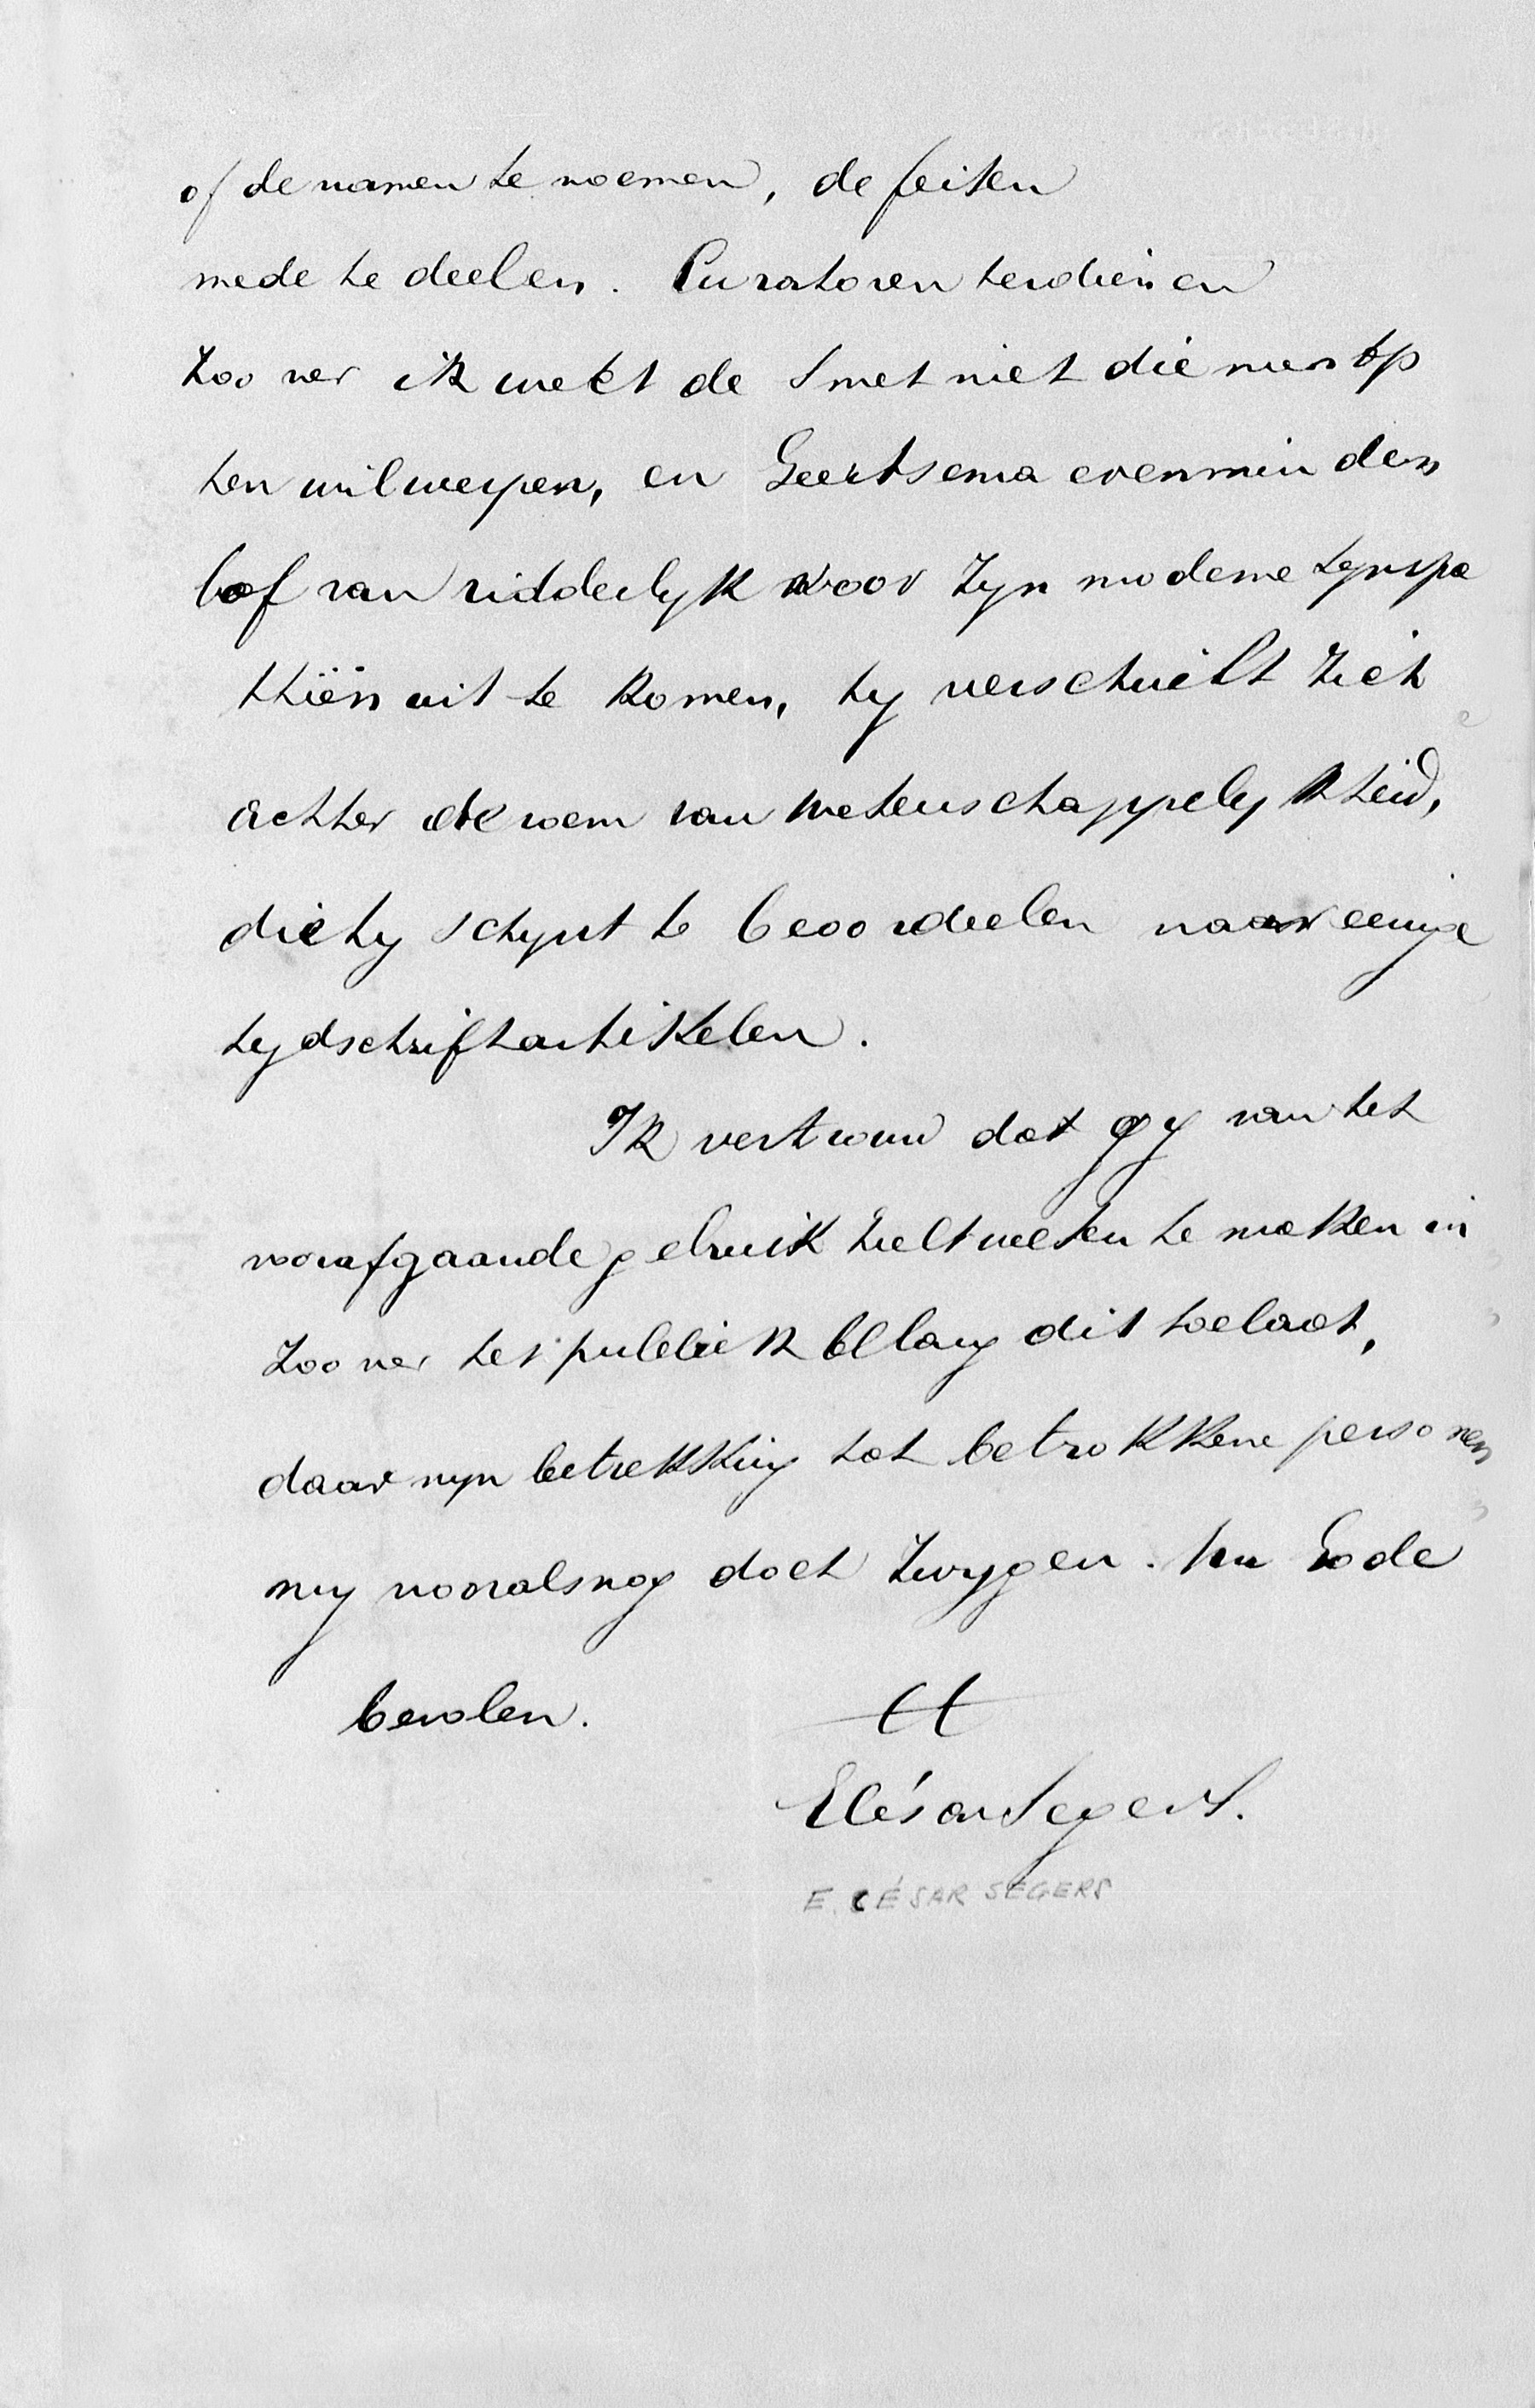 of de namen te noemen, de feiten
mede te deelen. Curatoren verdienen
zoo ver ik weet de smet niet die men op
hen wil werpen, en Geertsema evenmin den
lof van ridderlyk voor zyn moderne sympa
thiën uit te komen, hy verschuilt zich
achter de roem van wetenschappelykheid,
die hy schynt te beoordeelen naar eenige
tydschriftartikelen.
Ik vertrouw dat gy van het
voorafgaande gebruik zult weten te maken in
zoo ver het publiek belang dit toelaat,
daar myn betrekking tot betrokkene personen
my vooralsnog doet zwygen. Nu Gode
bevolen.
tt
ECésar Segers.
E. CÉSAR SEGERS